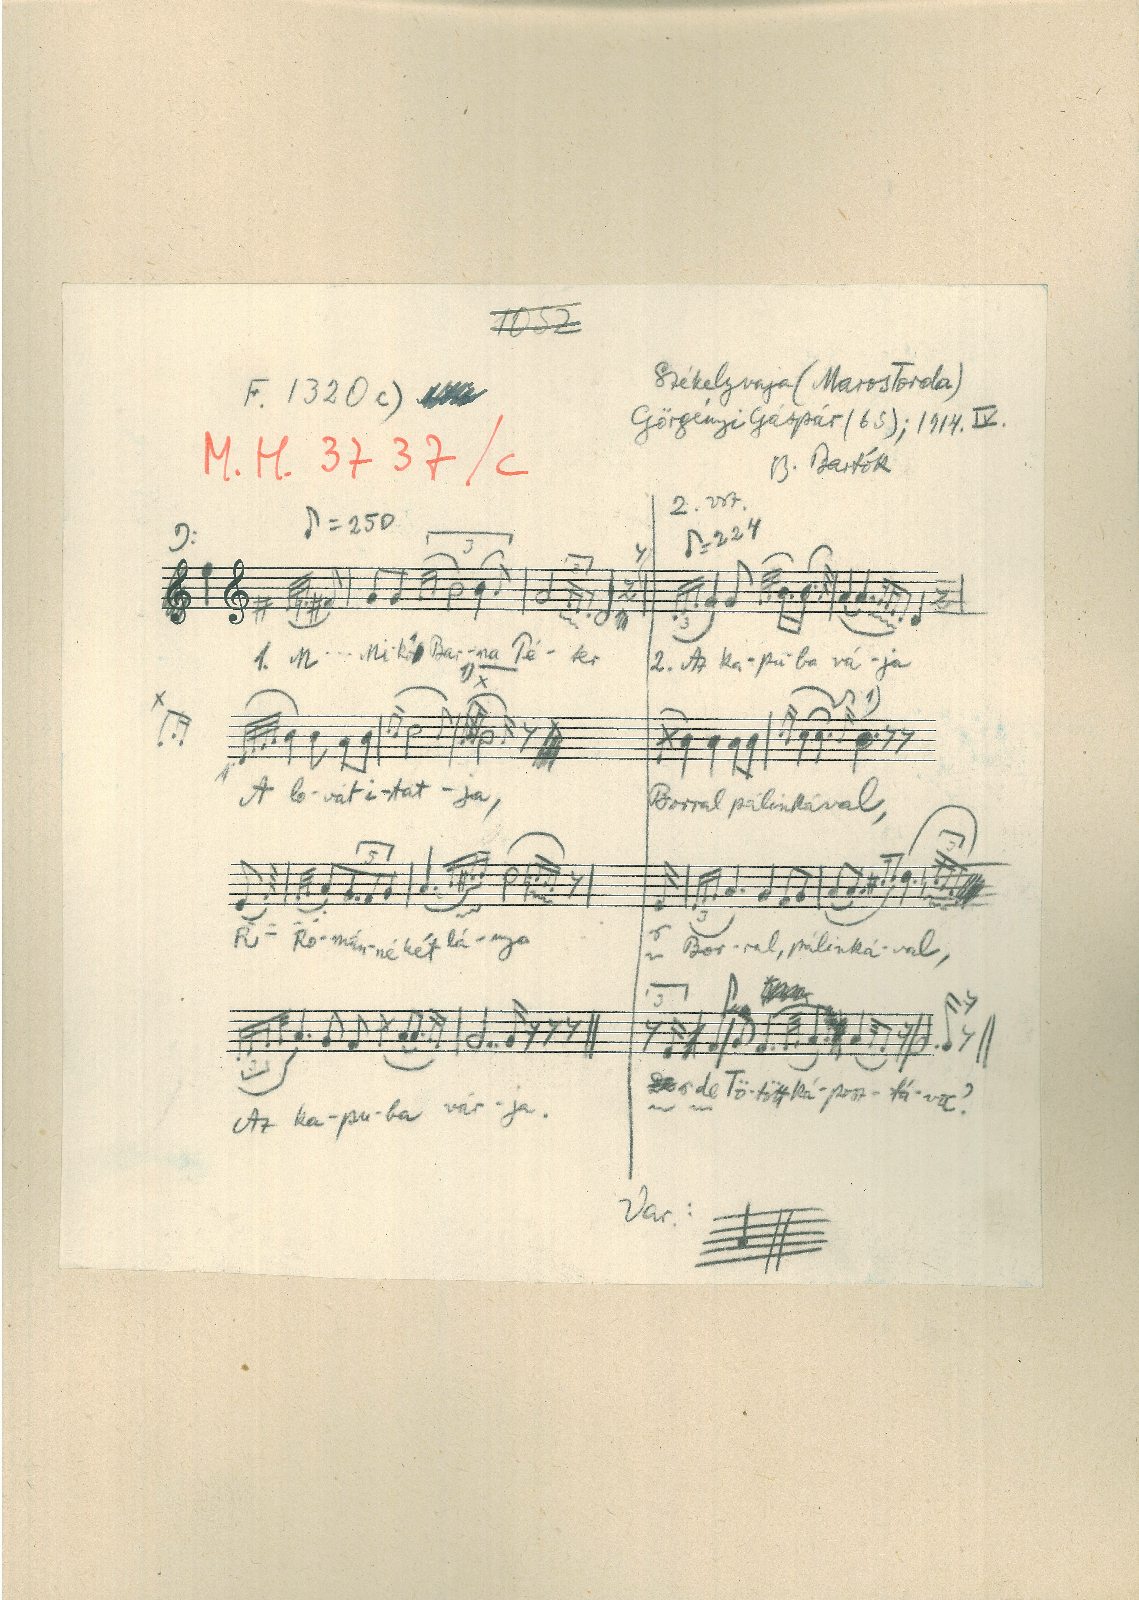 1052
F. 1320 c)
M. H. 3737/c
Székelyvaja (MarosTorda)
Görgényi Gáspár (65); 1914. IV.
B. Bartók
♪ = 250
2. vsz.
♪ = 224
1. M... Mikó Bar-na Pé-ter
2. Az ka-pu-ba vá-ja
A lo-vát i-tat-ja,
Borral pálinkával,
Ro-mán-né két lá-nya
Bor-ral, pálinká-val,
Az ka-pu-ba vár-ja.
de Tö-tött ká-posz-tá-va?
Var.: